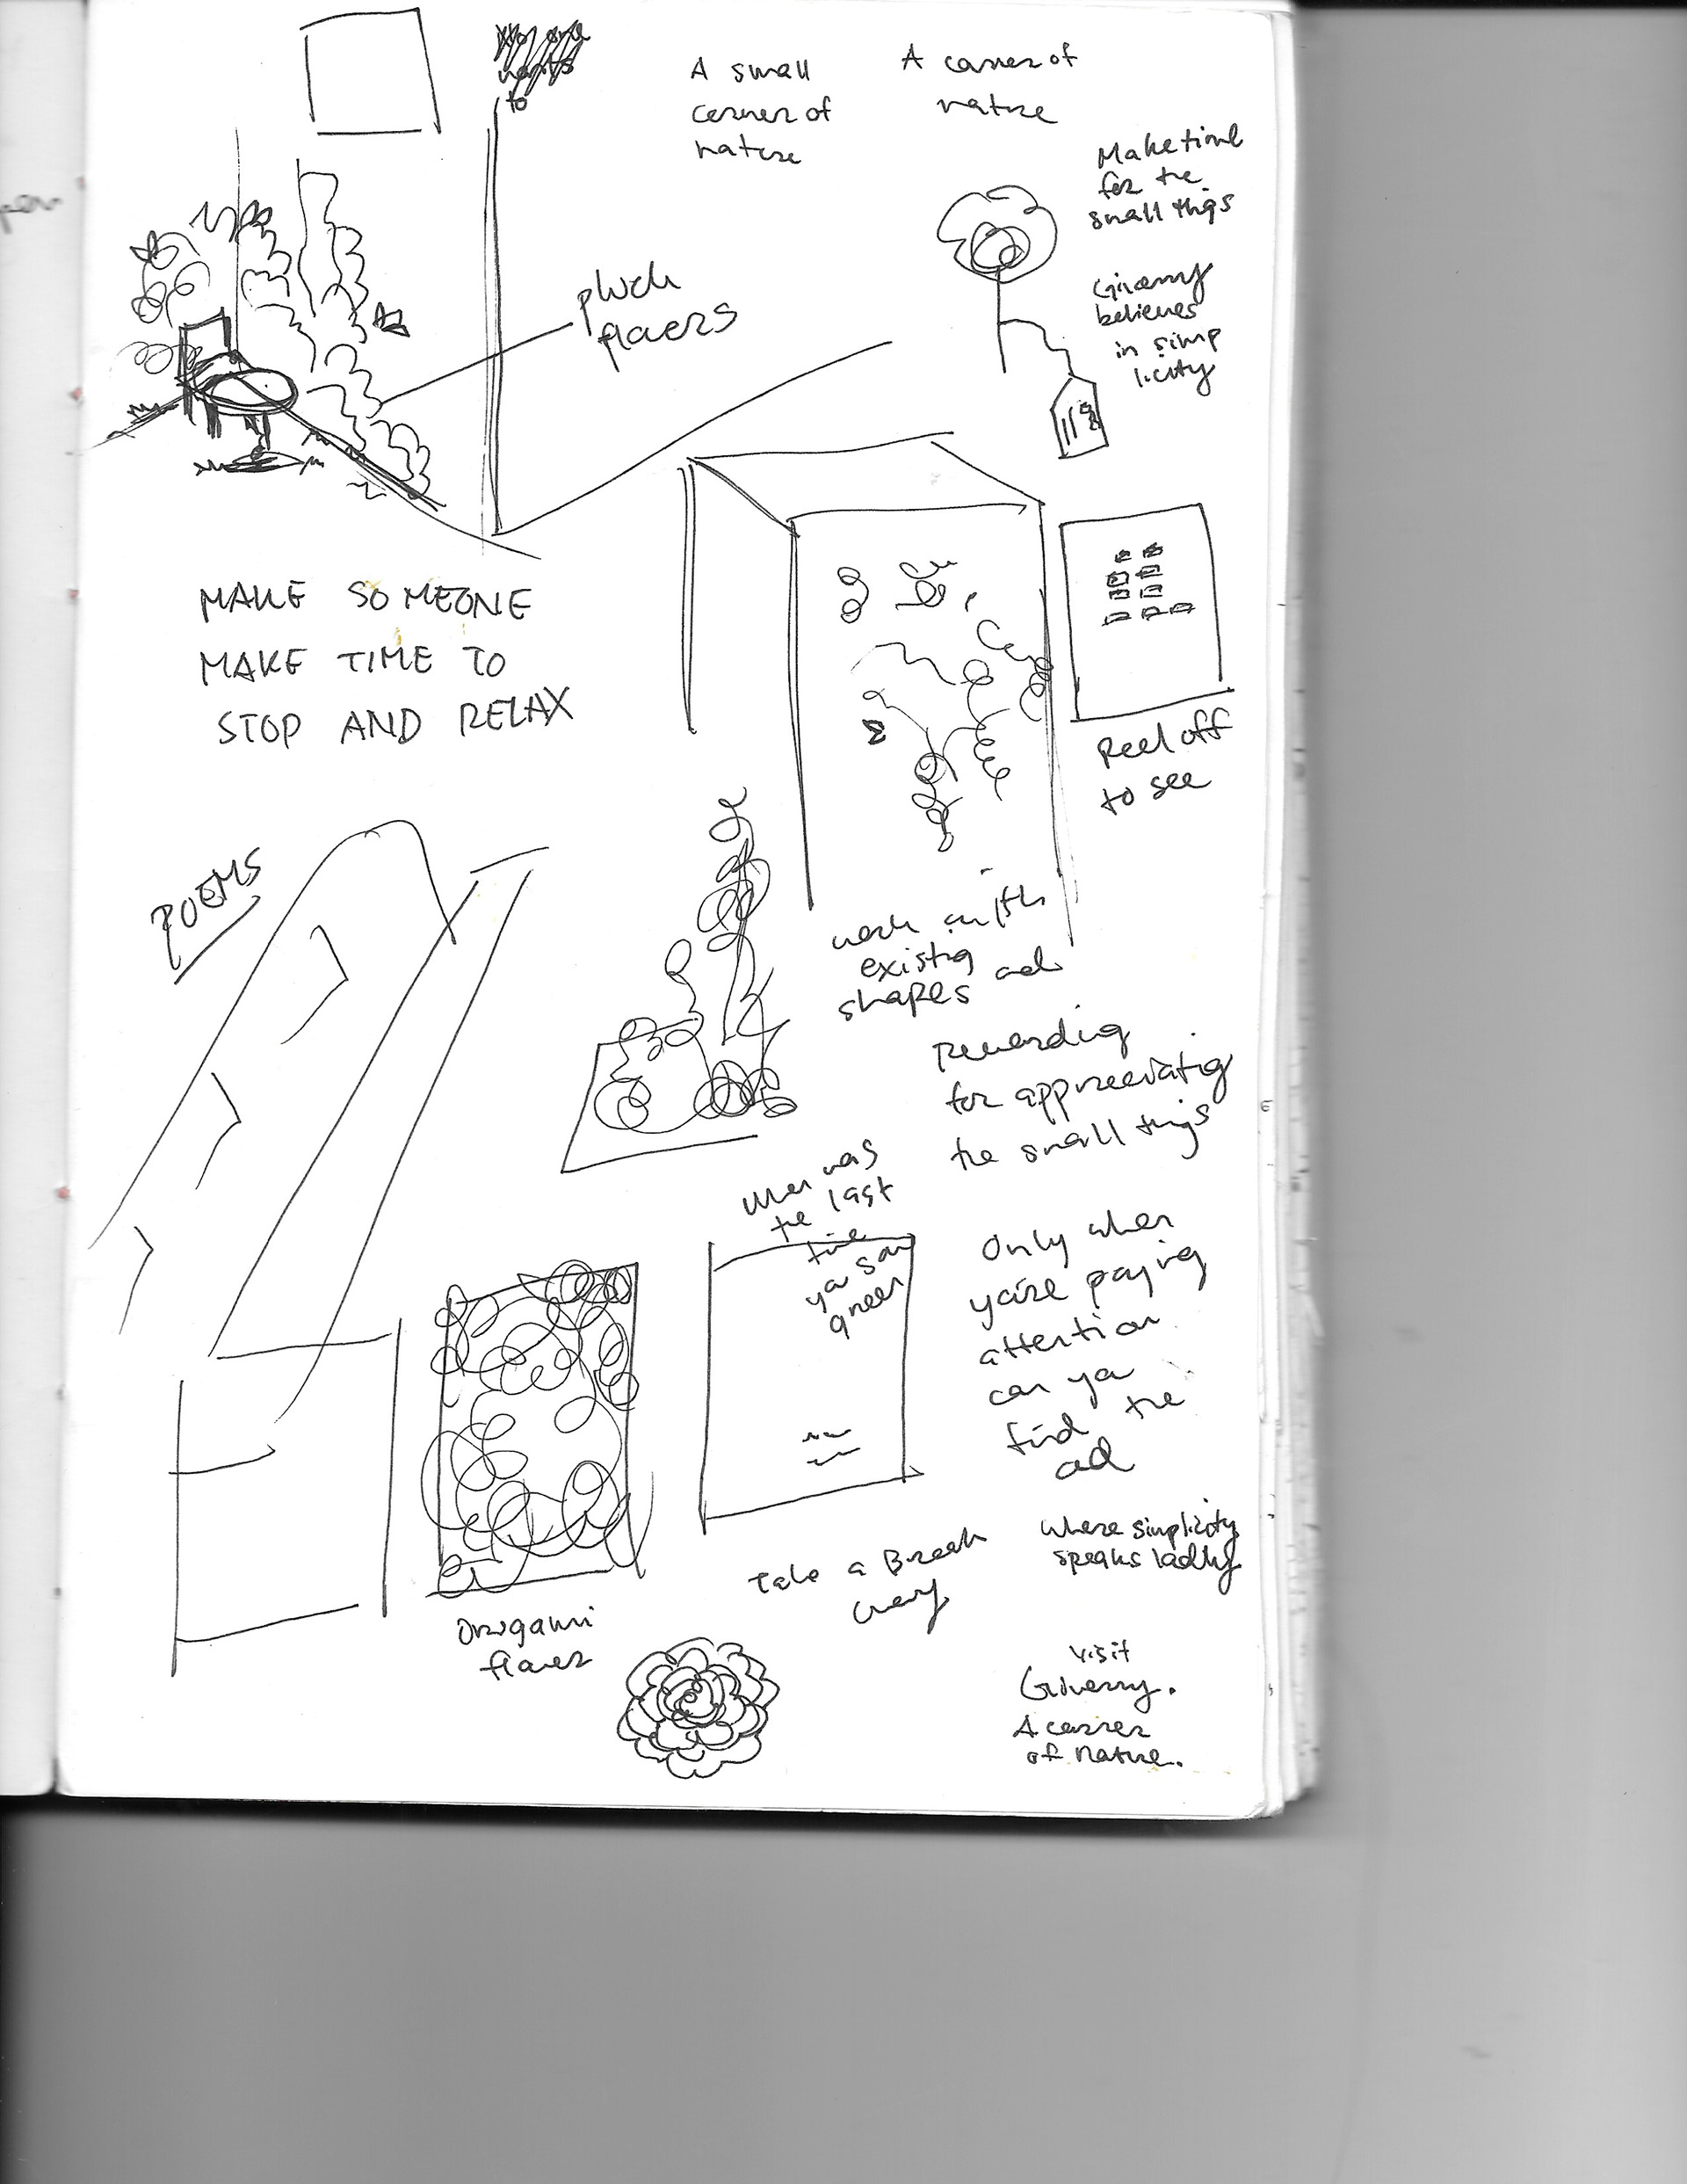 to
A small
corner of
nature
A corner of
nature
Make time
for the
small things
Giverny
believes
in simp
licity
pluck
flowers
MAKE SOMEONE
MAKE TIME TO
STOP AND RELAX
Peel off
to see
POEMS
work with
existing
shapes and
Rewarding
for appreciating
the small things
when was
the last
time
you saw
green
Only when
you're paying
attention
can you
find the
ad
Take a Break
where simplicity
speaks loudly
Origami
flower
visit
Giverny.
A corner
of nature.